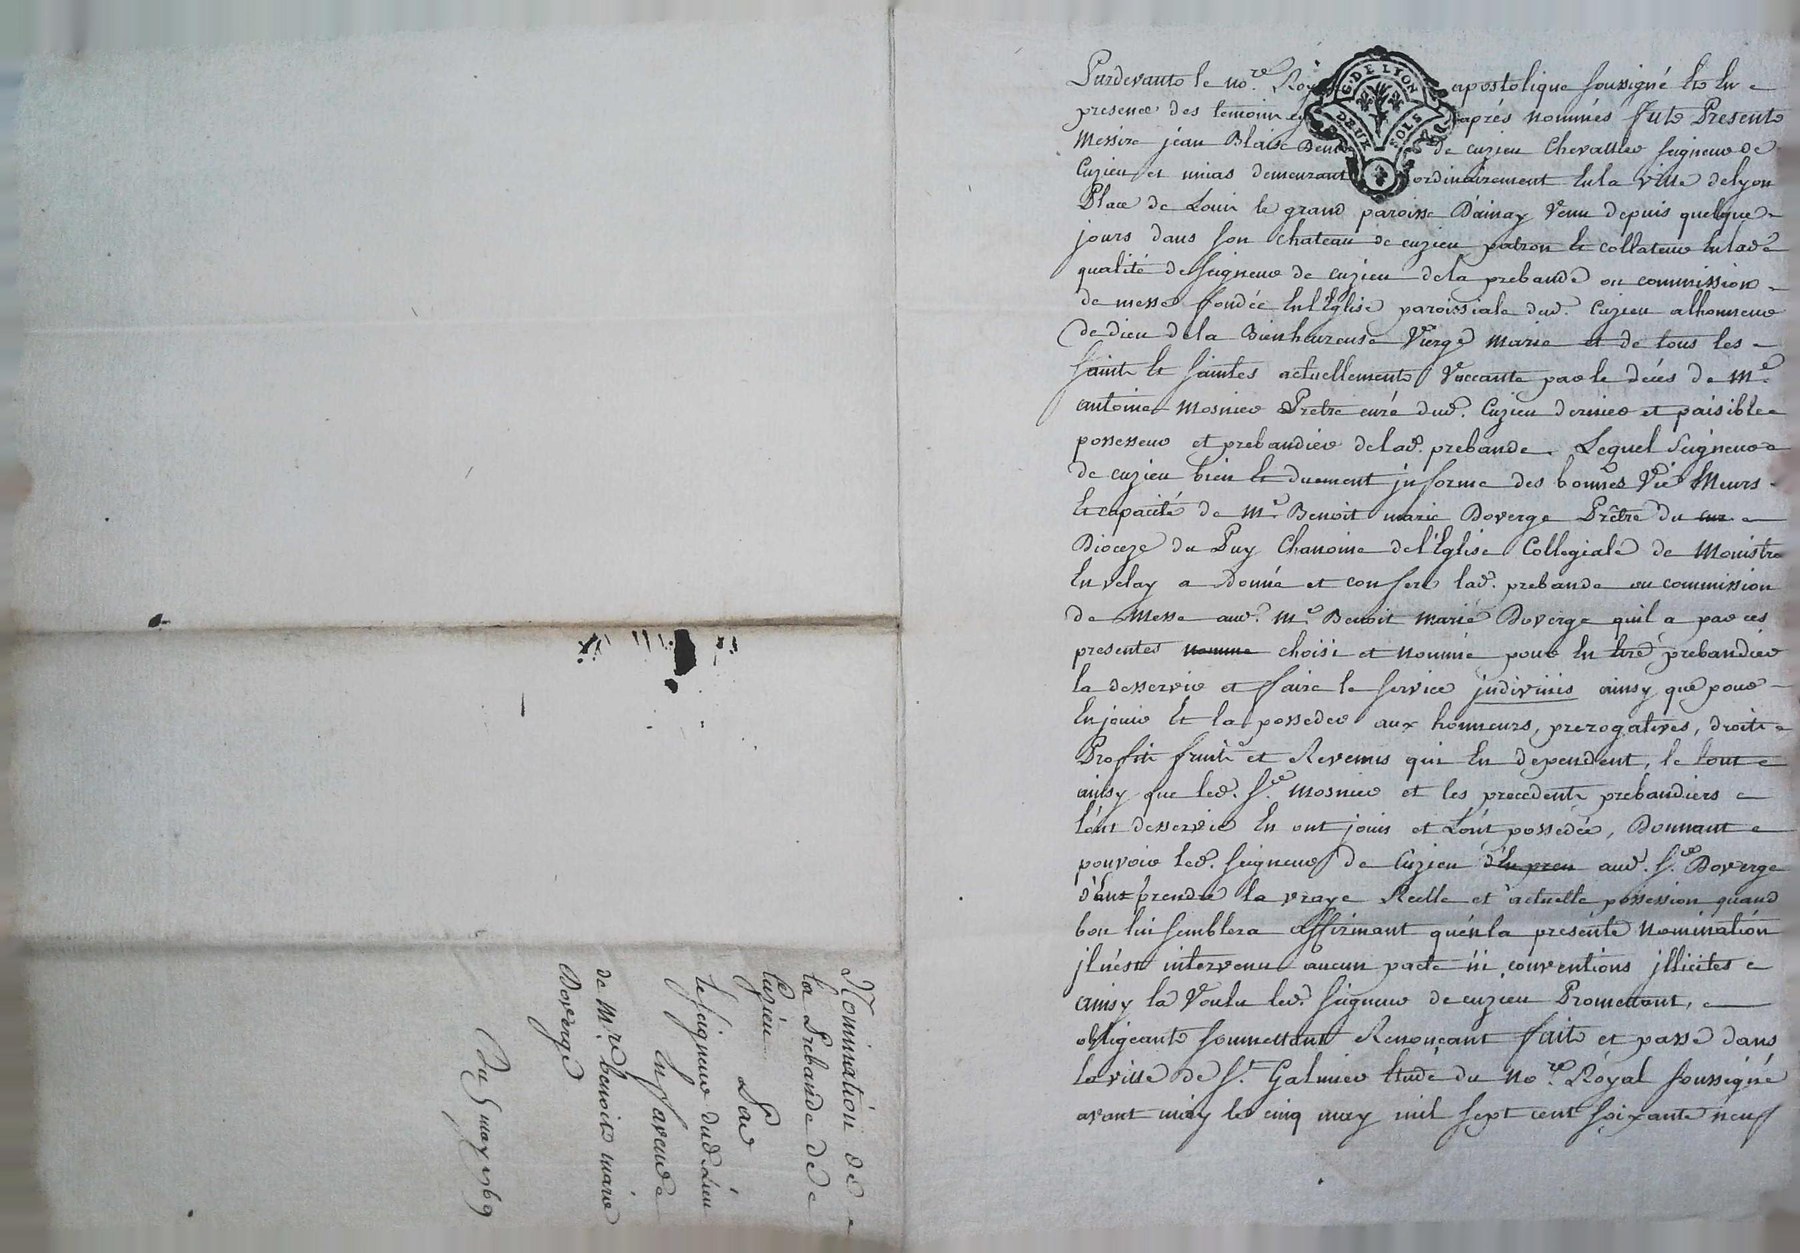 Pardevant le no.re Roy apostolique soussigné Et En
presence des temoins cy aprés nommés fut Present
Messire jean Blaise Denis de cuzieu Chevallier seigneur de
Cuzieu et unias demeurant ordinairement En la ville de lyon
Place de Louis le grand paroisse D'ainay Venu depuis quelque
jours dans son chateau de cuzieu patron Et collateur En lad.
qualité de seigneur de cuzieu de la prebande ou commission
de messe fondée En l'Eglise paroissiale dud. Cuzieu a lhonneur
de dieu de la Bienheureuse Vierge Marie et de tous les
saints Et saintes actuellement Vaccante par le décés de M.e
antoine Mosnier Pretre curé dud. Cuzieu dernier et paisible
possesseur et prebandier de lad. prebande. Lequel seigneur
de cuzieu bien Et duement informe des bonnes Vie Meurs
Et capacité de M.e Benoit marie Doverge Prêtre du cur
Dioceze du Puy Chanoine de l'Eglise Collegiale de Monistrol
En velay a donné et confere lad. prebande ou commission
de Messe aud. M.e Benoit Marie Doverge quil a par ces
presentes nomme choisi et nommé pour En Etre prebandier
la desservir et faire le service in divinis ainsy que pour
En jouir Et la posseder aux honneurs, prerogatives, droits
Profits fruits et Revenus qui En dependent, le tout
ainsy que led. S.r Mosnier et les precedents prebandiers
l'ont desservie En ont joui et L'ont possedée, Donnant
pouvoir led. seigneur de Cuzieu d'En pren aud. S.r Doverge
d'En prendre la vraye Reelle et actuelle possession quand
bon lui semblera affirmant qu'en la présente nomination
il n'est intervenu aucun pacte ni conventions illicites
ainsy la Voulu led. seigneur de cuzieu Promettant,
obligeant soumettant Renonçant fait et passé dans
la ville de S.t Galmier Etude du No.re Royal soussigné
avant midy le cinq may mil sept cent soixante neuf
Nomination de
la Prebande de
Cuzieu Par
le seigneur dud. Lieu
En faveur
de M.re benoit marie
Doverge
Du 5 may 1769
G. DE LYON
DEUX SOLS